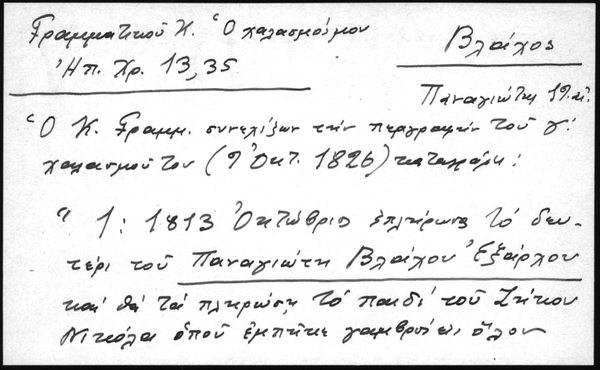 Γραμματικού Κ. Ὁ χαλασμός μου
Ἠπ. Χρ. 13, 35
Βλάχος
Παναγιώτη 19 αἰ.
Ὁ Κ. Γραμμ. συνεχίζων τήν περιγραφήν τοῦ γ!
χαλασμοῦ του (9 Ὀκτ. 1826) καταγράφει:
" 1: 1813 Ὀκτώβριο ἐπλήρωσε τό δευ-
τέρι τοῦ Παναγιώτη Βλάχου Ἐξάρχου
καί θά τά πληρώση τό παιδί τοῦ Ζήκου
Νικόλα ὁπού ἐμπῆκε γαμβρός εἰς ὅλον